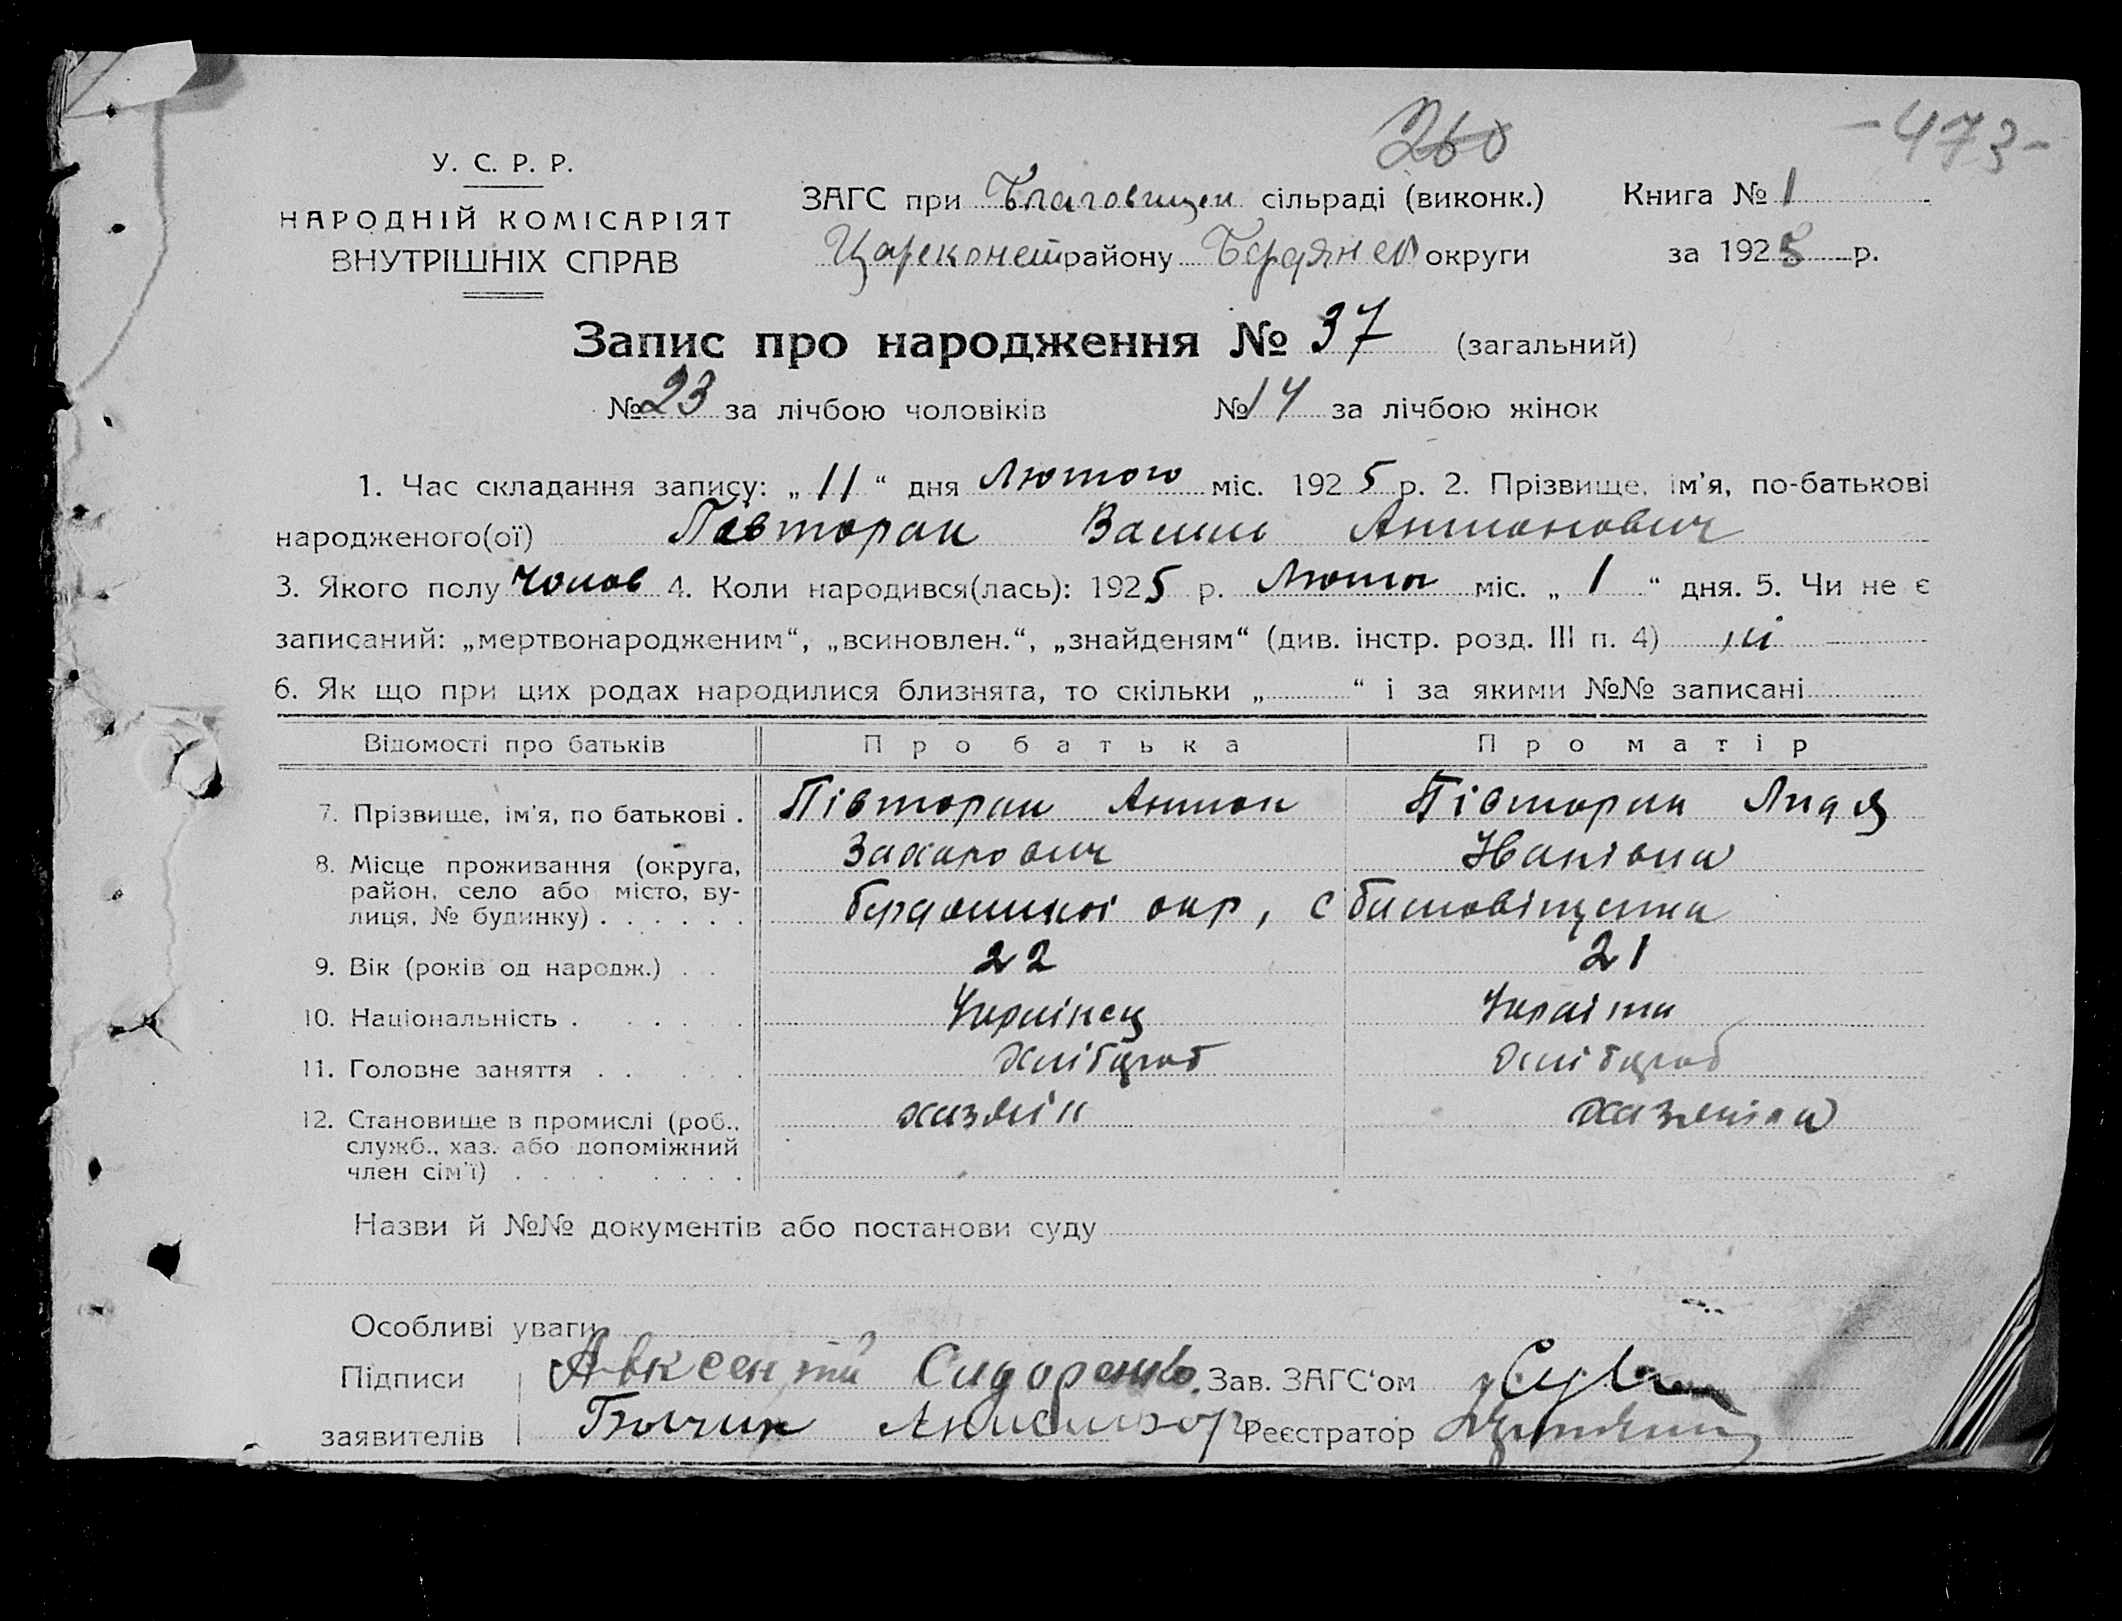 260
-473-
У. С. Р. Р.
НАРОДНІЙ КОМІСАРІЯТ
ВНУТРІШНІХ СПРАВ
ЗАГС при Благовищен сільраді (виконк.) Книга № 1
Царекон району Бердянсь округи за 1925 р.
Запис про народження № 37 (загальний)
№ 23 за лічбою чоловіків № 14 за лічбою жінок
1. Час складання запису: „ 11 “ дня Лютого міс. 1925 р. 2. Прізвище, ім'я, по-батькові
народженого(ої) Півторак Антонович
3. Якого полу Чолов 4. Коли народився(лась): 1925 р. міс. „ 1 “ дня. 5. Чи не є
записаний: „мертвонародженим“, „всиновлен.“, „знайденям“ (див. інстр. розд. III п. 4) ні
6. Як що при цих родах народилися близнята, то скільки „ “ і за якими №№ записані
Відомості про батьків Про батька Про матір
7. Прізвище, ім'я, по батькові . Півторак Антон Півторак Лидя
Захарович Іванівна
8. Місце проживання (округа,
район, село або місто, ву-
лиця, № будинку) . . . . . . окр, с
9. Вік (років од народж.) . . 22 21
10. Національність . . . . . . Українец
11. Головне заняття . . . . . Хлібороб Хлібороб
12. Становище в промислі (роб.,
служб., хаз. або допоміжний
член сім'ї) . . . . . . . . хазяїн
Назви й №№ документів або постанови суду
Особливі уваги
Підписи Авксентій Сидоренко Зав. ЗАГС‘ом
заявителів Реєстратор